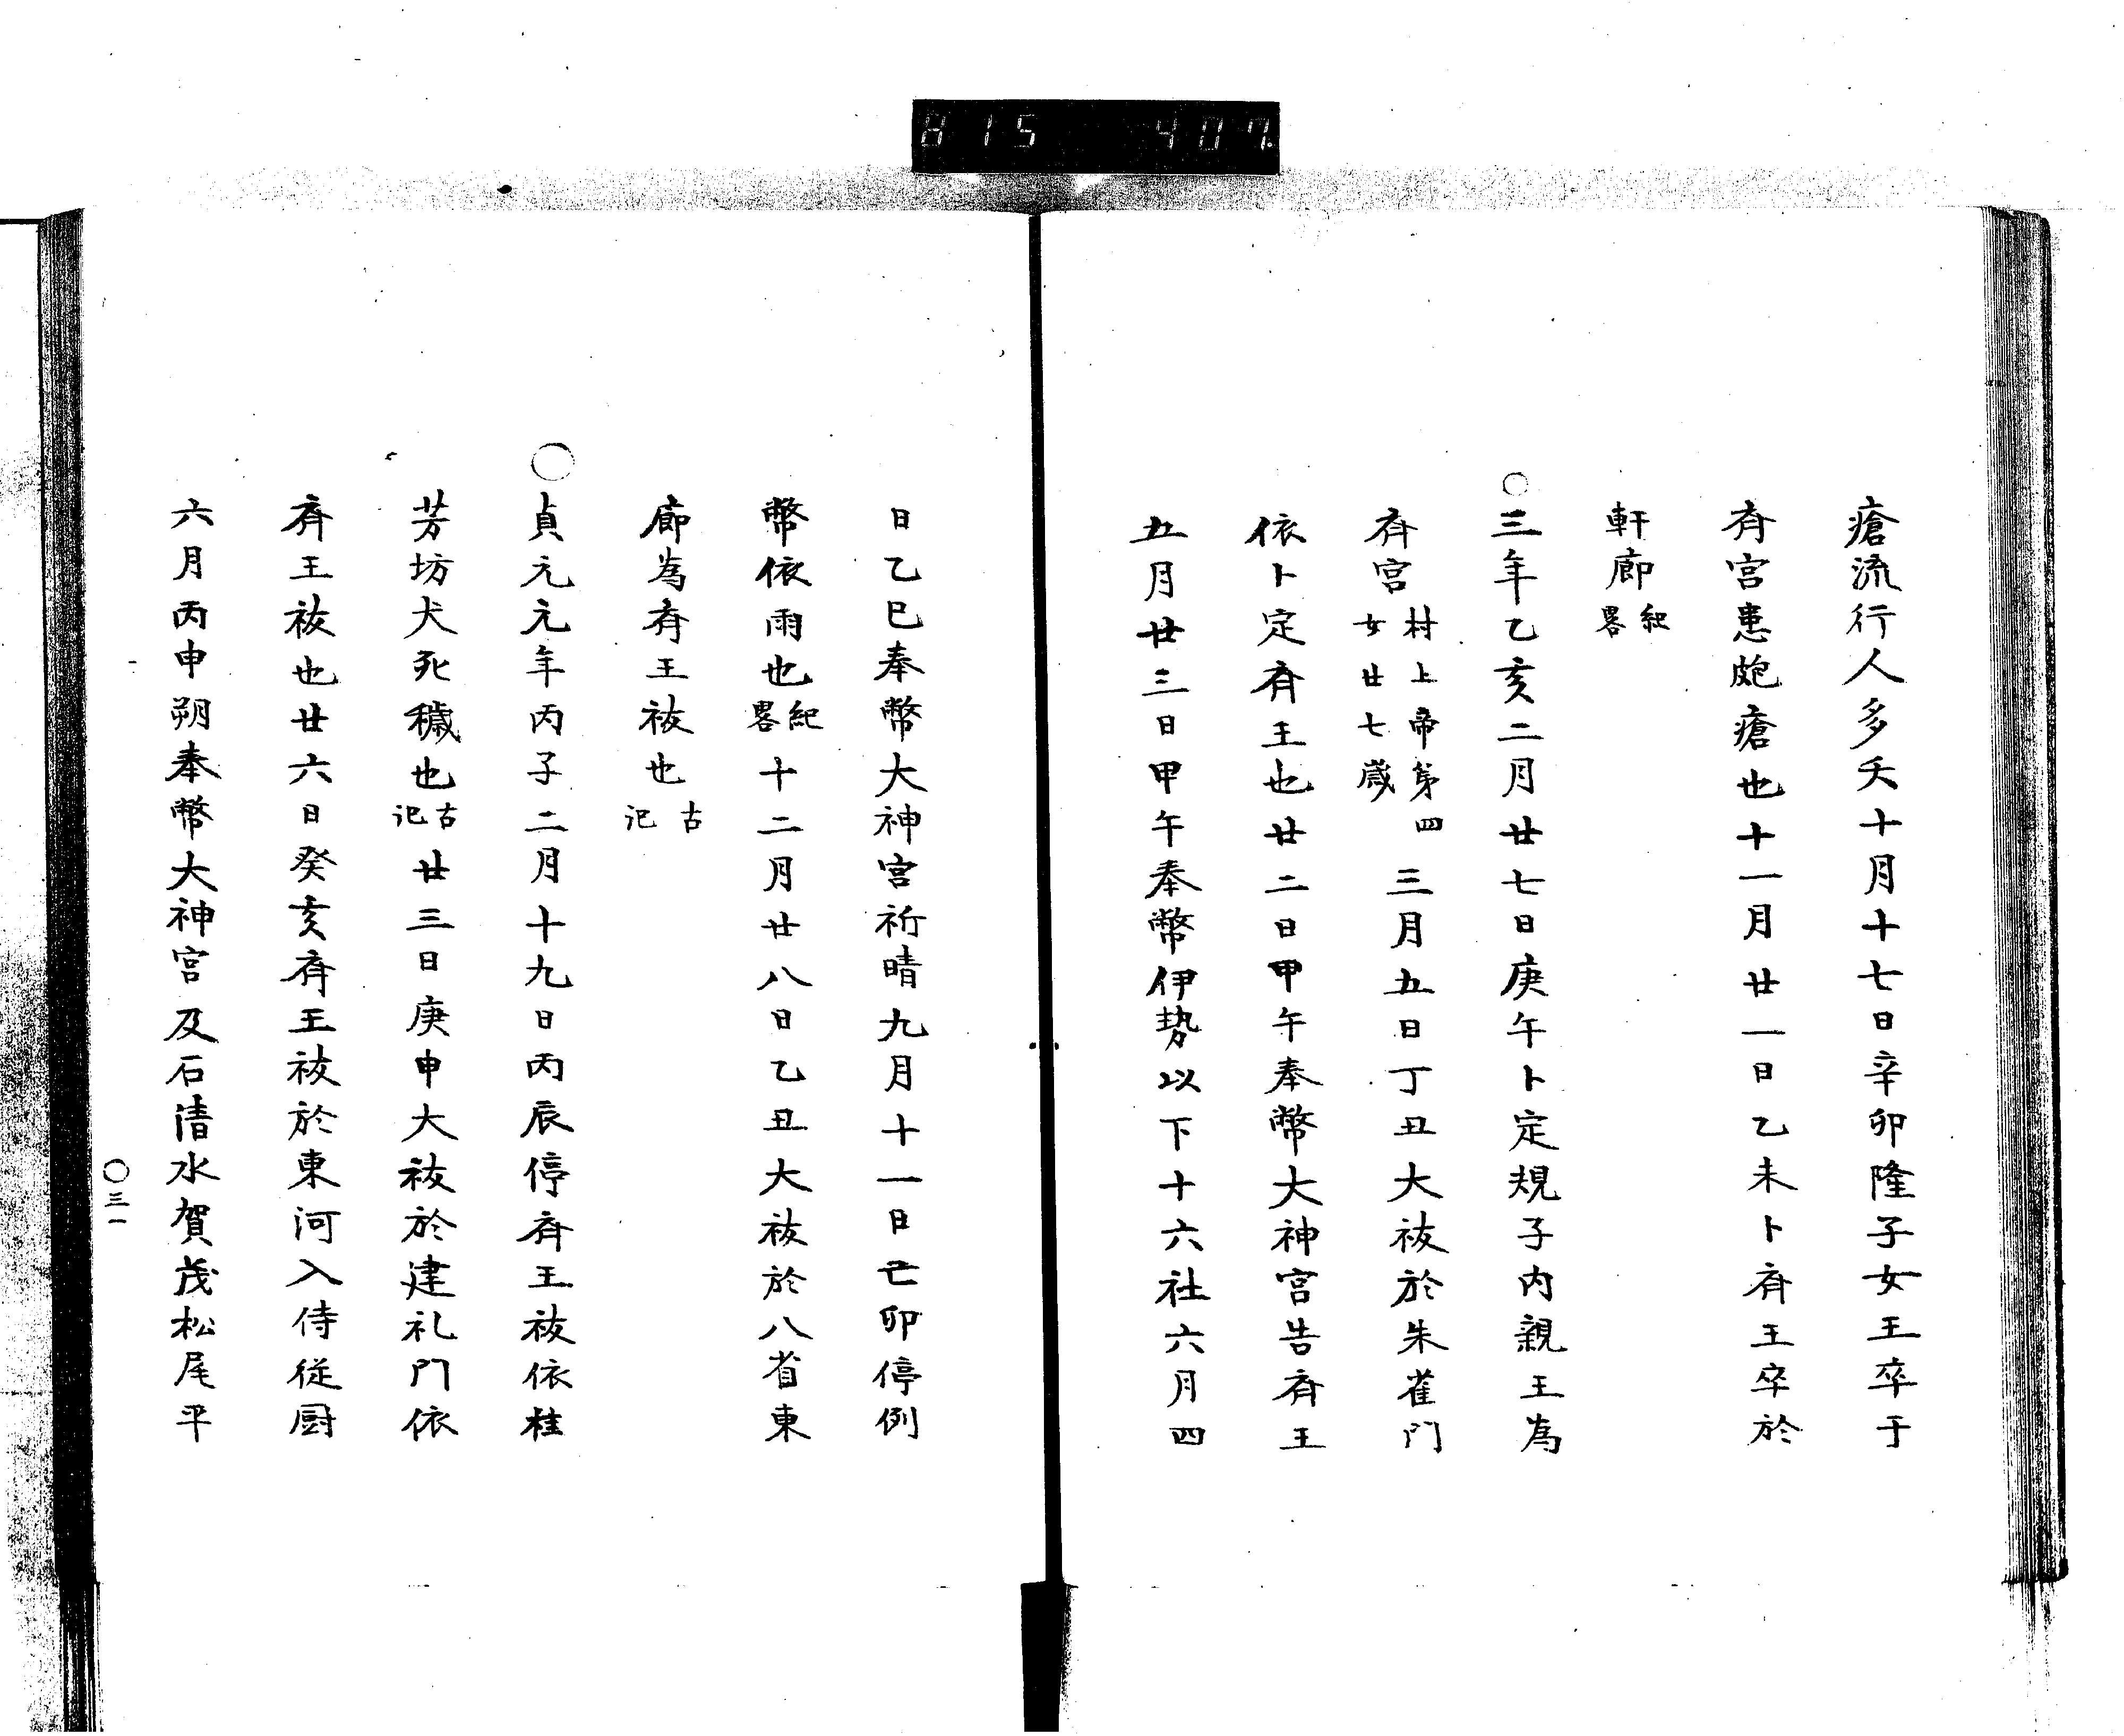 815 407
瘡流行人多夭十月十七日辛卯隆子女王卒于
斉宮患皰瘡也十一月廿一日乙未卜斉王卒於
軒廊紀畧
○三年乙亥二月廿七日庚午卜定規子内親王為
斉宮村上帝第四女廿七歳三月五日丁丑大祓於朱雀門
依卜定斉王也廿二日甲午奉幣大神宮告斉王
五月廿三日甲午奉幣伊勢以下十六社六月四
日乙巳奉幣大神宮祈晴九月十一日己卯停例
幣依雨也紀畧十二月廿八日乙丑大祓於八省東
廊為斉王祓也古記
○貞元元年丙子二月十九日丙辰停斉王祓依桂
芳坊犬死穢也古記廿三日庚申大祓於建礼門依
斉王祓也廿六日癸亥斉王祓於東河入侍従厨
六月丙申朔奉幣大神宮及石清水賀茂松尾平
○三一